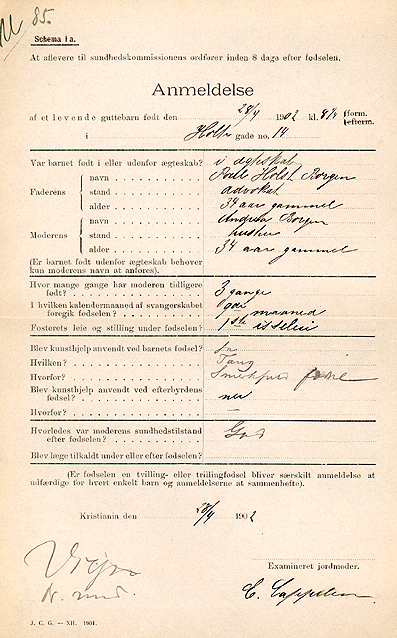 85.
Schema 1 a.
At aflevere til sundhedskommissionens ordfører inden 8 dage efter fødselen.
Anmeldelse
af et levende guttebarn født den 28/4 1902 kl. form. efterm.
i gade no. 14
Var barnet født i eller udenfor ægteskab? i ægteskab
Faderens
navn Holst Borgen
stand advokat
alder 34 aar gammel
Moderens
navn Andrea Borgen
stand hustru
alder 34 aar gammel
(Er barnet født udenfor ægteskab behøver
kun moderens navn at anføres).
Hvor mange gange har moderen tidligere
født? 3 gange
I hvilken kalendermaaned af svangerskabet
foregik fødselen? maaned
Fosterets leie og stilling under fødselen? 1ste isseleie
Blev kunsthjelp anvendt ved barnets fødsel? Ja
Hvilken? Tang
Hvorfor?
Blev kunsthjelp anvendt ved efterbyrdens
fødsel? nei
Hvorfor? —
Hvorledes var moderens sundhedstilstand
efter fødselen? God
Blev læge tilkaldt under eller efter fødselen?
(Er fødselen en tvilling- eller trillingfødsel bliver særskilt anmeldelse at
udfærdige for hvert enkelt barn og anmeldelserne at sammenhefte).
Kristiania den 28/4 1902
Examineret jordmoder.
C. Cappelen
J. C. G. — XII. 1901.